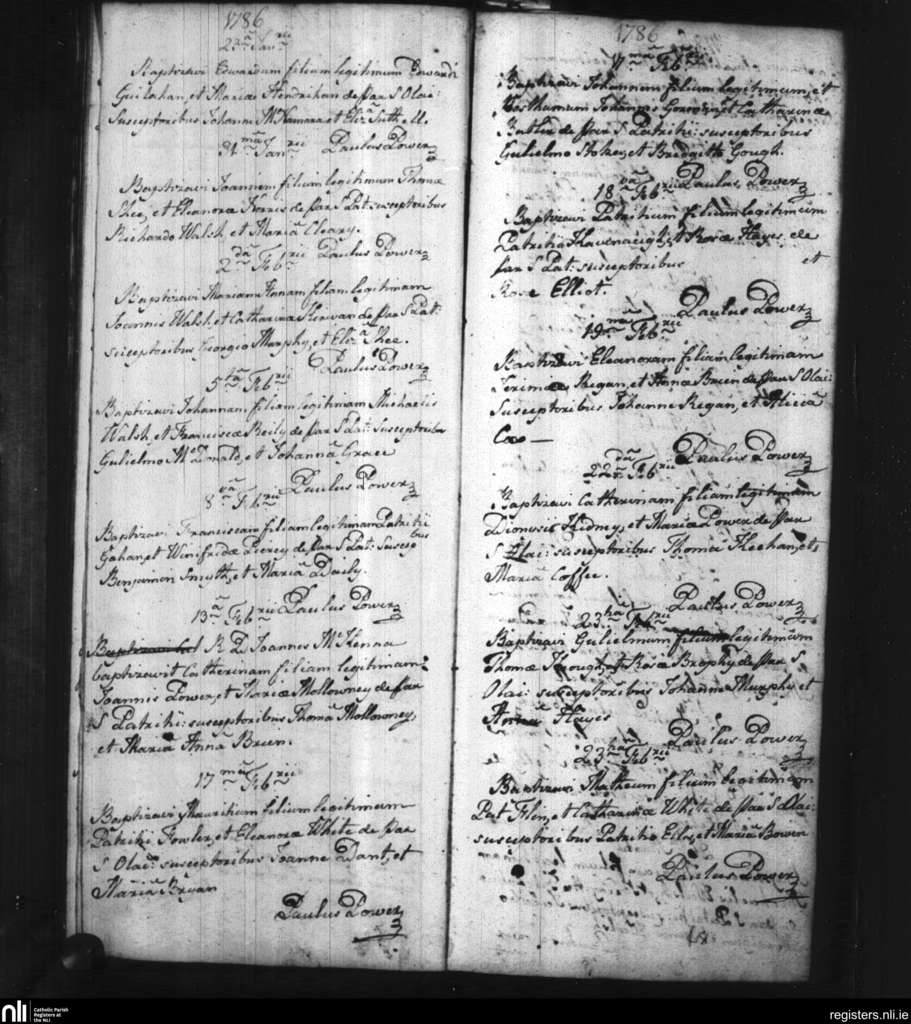 1786
23ª Janrii
Baptizavi Edwardum filium legitimum Edwardi
et Mariæ Hendrikan de Par S Olai:
Susceptoribus Johanne McNamara et Elizª
31ma Janrii Paulus Power
Baptizavi Joannem filium legitimum Thomæ
Shee, et Eleanoræ de Par S Pat: susceptoribus
Richardo Walsh, et Mariâ Cleary.
2da Febrii Paulus Power
Baptizavi Mariam Annam filiam legitimam
Joannis Walsh, et Catharinæ Kerwan de Par S Pat:
susceptoribus Georgio Murphy, et Elizª Shee.
Paulus Power
5ta Febrii
Baptizavi Johannam filiam legitimam Michaelis
Walsh, et Franciscæ Reily de Par S Pat: Susceptoribus
Gulielmo McDonald, et Johannâ Grace
8va Febrii Paulus Power
Baptizavi Franciscam filiam legitimam Patritii
Gahan, et Winifridæ Piercy de Par S Pat: Susceptoribus
Benjamin Smyth, et Mariâ Daily.
13ª Febrii Paulus Power
Baptizavi R D Joannes McKenna
baptizavit Catherinam filiam legitimam
Joannis Power, et Mariæ Mollowney de Par
S Patritii: susceptoribus Thomâ Mollowney,
et Mariâ Annâ Bruen.
17ma Febrii
Baptizavi Mauritium filium legitimum
Patritii Fowler, et Eleanoræ White de Par
S Olai: susceptoribus Joanne Dant, et
Mariâ Bryan
Paulus Power
1786
17ma Febrii
Baptizavi Johannem filium legitimum, et
Posthumum Johannis et Catharinæ
Butler de Par S Patritii: susceptoribus
Gulielmo Stokes, et Bridgitta Gough.
18va Febrii Paulus Power
Baptizavi Patritium filium legitimum
Patritii Kavenaugh, et Rosæ Hayes de
Par S Pat: susceptoribus et
Rose Elliot.
Paulus Power
19ma Febrii
Baptizavi Eleanoram filiam legitimam
Jerimæ Regan, et Annæ Bruen de Par S Olai:
Susceptoribus Johanne Regan, et Aliciâ
Cox —
22da Febrii Paulus Power
Baptizavi Catherinam filiam legitimam
Dionisii Kidney, et Mariæ Power de Par
S Olai: susceptoribus Thoma Keehan, et
Mariâ Coffee.
Paulus Power
23tia Febrii
Baptizavi Gulielmum filium legitimum
Thomæ Keough, et Rosæ Brophy de Par S
Olai: susceptoribus Johanne Murphy et
Anna Hayes
23tia Febrii Paulus Power
Baptizavi Matheum filium legitimum
Pat Flin, et Catharinæ White de Par S Olai:
susceptoribus Patritio et Mariâ Bowen
Paulus Power
nli Catholic Parish
Registers at
the NLI
registers.nli.ie